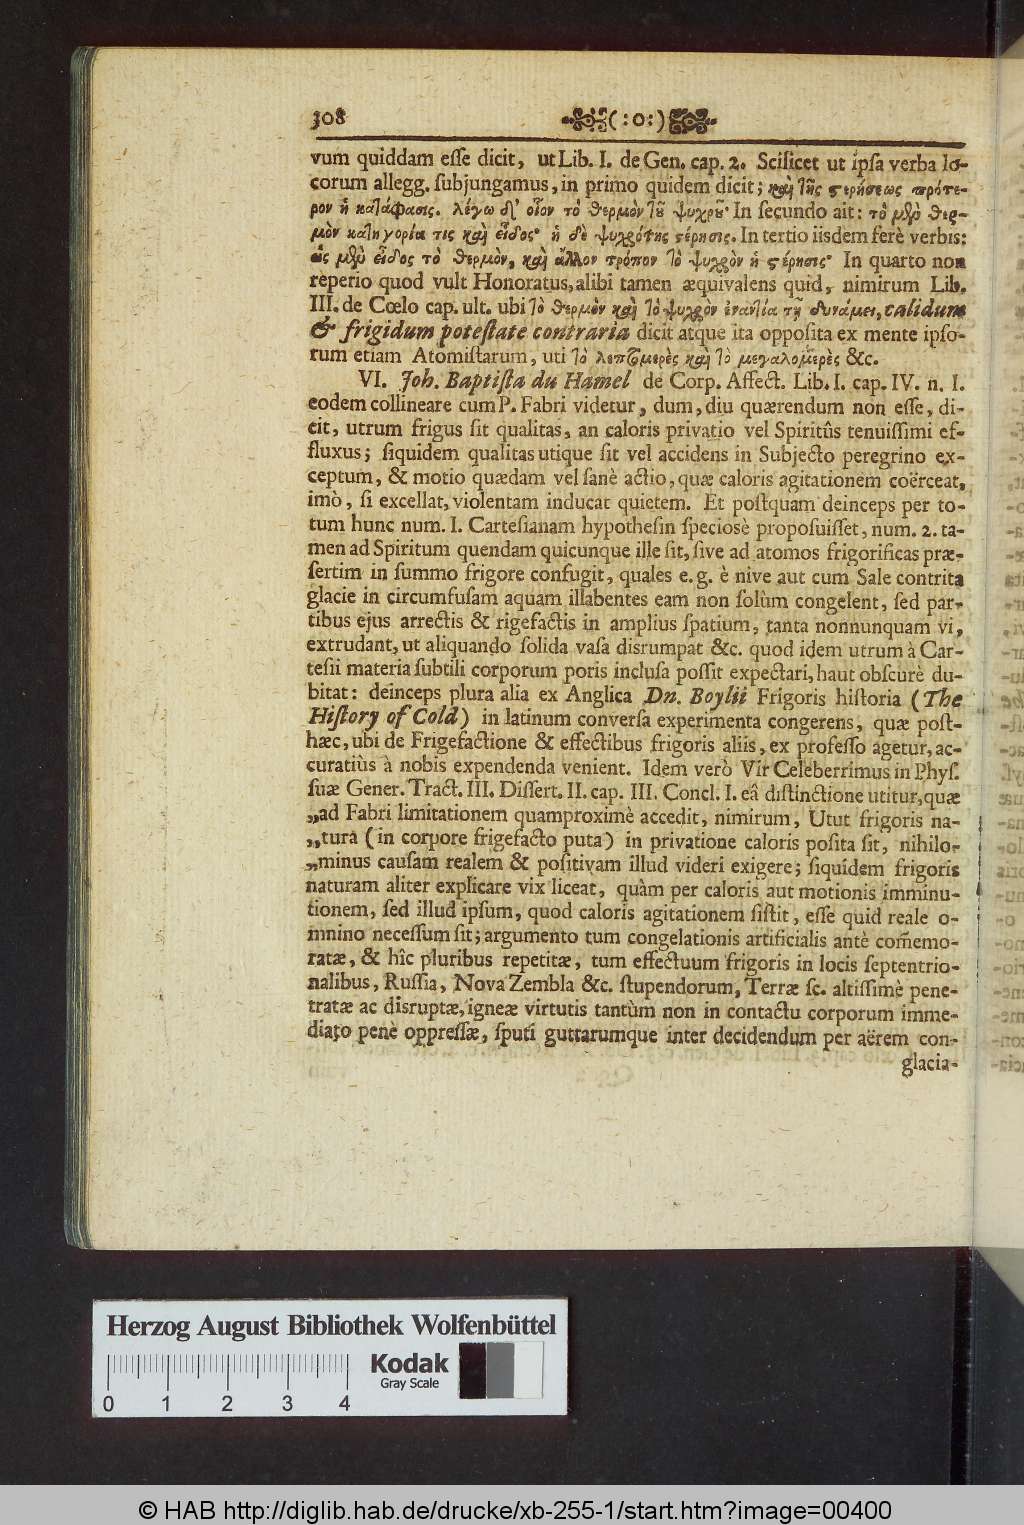 308 (:o:)
vum quiddam eſſe dicit, ut Lib. I. de Gen. cap. 2. Scilicet ut ipſa verba lo-
corum allegg. ſubjungamus, in primo quidem dicit; καὶ τῆς στερήσεως πρότε-
ρον ἡ κατάφασις. λέγω δ' οἷον τὸ θερμὸν τοῦ ψυχροῦ· In ſecundo ait: τὸ μὲν θερ-
μὸν κατηγορία τις καὶ εἶδος· ἡ δὲ ψυχρότης στέρησις. In tertio iisdem ferè verbis:
ὡς μὲν εἶδος τὸ θερμὸν, καὶ ἄλλον τρόπον τὸ ψυχρὸν ἡ στέρησις· In quarto non
reperio quod vult Honoratus, alibi tamen æquivalens quid, nimirum Lib.
III. de Cœlo cap. ult. ubi τὸ θερμὸν καὶ τὸ ψυχρὸν ἐναντία τῇ δυνάμει, calidum
& frigidum poteſtate contraria dicit atque ita oppoſita ex mente ipſo-
rum etiam Atomiſtarum, uti τὸ λεπτομερὲς καὶ τὸ μεγαλομερὲς &c.
VI. Joh. Baptiſta du Hamel de Corp. Affect. Lib. I. cap. IV. n. I.
eodem collineare cum P. Fabri videtur, dum, diu quærendum non eſſe, di-
cit, utrum frigus ſit qualitas, an caloris privatio vel Spiritûs tenuiſſimi ef-
fluxus; ſiquidem qualitas utique ſit vel accidens in Subjecto peregrino ex-
ceptum, & motio quædam vel ſanè actio, quæ caloris agitationem coërceat,
imò, ſi excellat, violentam inducat quietem. Et poſtquam deinceps per to-
tum hunc num. I. Carteſianam hypotheſin ſpeciosè propoſuiſſet, num. 2. ta-
men ad Spiritum quendam quicunque ille ſit, ſive ad atomos frigorificas præ-
ſertim in ſummo frigore confugit, quales e. g. è nive aut cum Sale contrita
glacie in circumfuſam aquam illabentes eam non ſolùm congelent, ſed par-
tibus ejus arrectis & rigefactis in amplius ſpatium, tanta nonnunquam vi,
extrudant, ut aliquando ſolida vaſa disrumpat &c. quod idem utrum à Car-
teſii materia ſubtili corporum poris incluſa poſſit expectari, haut obſcurè du-
bitat: deinceps plura alia ex Anglica Dn. Boylii Frigoris hiſtoria (The
Hiſtory of Cold) in latinum converſa experimenta congerens, quæ poſt-
hæc, ubi de Frigefactione & effectibus frigoris aliis, ex profeſſo agetur, ac-
curatiùs à nobis expendenda venient. Idem verò Vir Celeberrimus in Phyſ.
ſuæ Gener. Tract. III. Diſſert. II. cap. III. Concl. I. eâ diſtinctione utitur, quæ
„ad Fabri limitationem quamproximè accedit, nimirum, Utut frigoris na-
„tura (in corpore frigefacto puta) in privatione caloris poſita ſit, nihilo-
„minus cauſam realem & poſitivam illud videri exigere; ſiquidem frigoris
naturam aliter explicare vix liceat, quàm per caloris aut motionis imminu-
tionem, ſed illud ipſum, quod caloris agitationem ſiſtit, eſſe quid reale o-
mnino neceſſum ſit; argumento tum congelationis artificialis antè com̃emo-
ratæ, & hîc pluribus repetitæ, tum effectuum frigoris in locis ſeptentrio-
nalibus, Ruſſia, Nova Zembla &c. ſtupendorum, Terræ ſc. altiſſimè pene-
tratæ ac diſruptæ, igneæ virtutis tantùm non in contactu corporum imme-
diato penè oppreſſæ, ſputi guttarumque inter decidendum per aërem con-
glacia-
Herzog August Bibliothek Wolfenbüttel
Kodak
Gray Scale
0 1 2 3 4
© HAB http://diglib.hab.de/drucke/xb-255-1/start.htm?image=00400